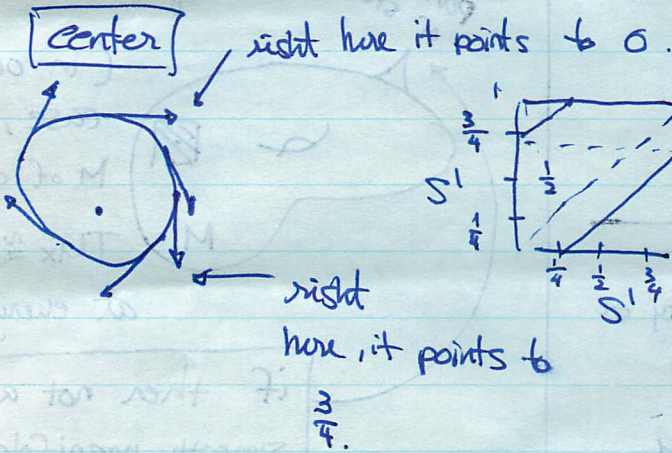 center
right here it points to 0.
1
3/4
S¹
1/2
1/4
1/4 1/2 3/4
S¹
right
here, it points to
3/4.
if then not a